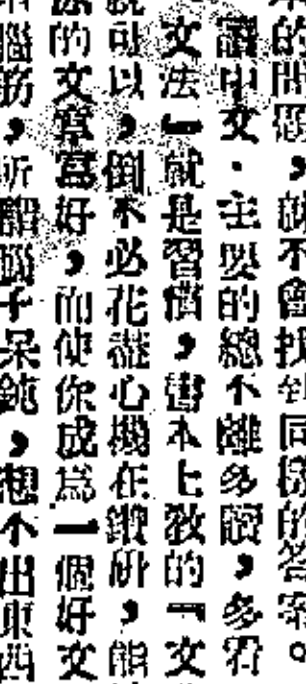 的問題，就不會找到同樣的答案。
讀中文．主要的總不離多讀，多看
文法』就是習慣，書本上教的，『文
可以，倒不必花盡心機在鑽研，能
的文章寫好，而使你成為一個好文
腦筋，所謂腦子呆鈍，想不出東西